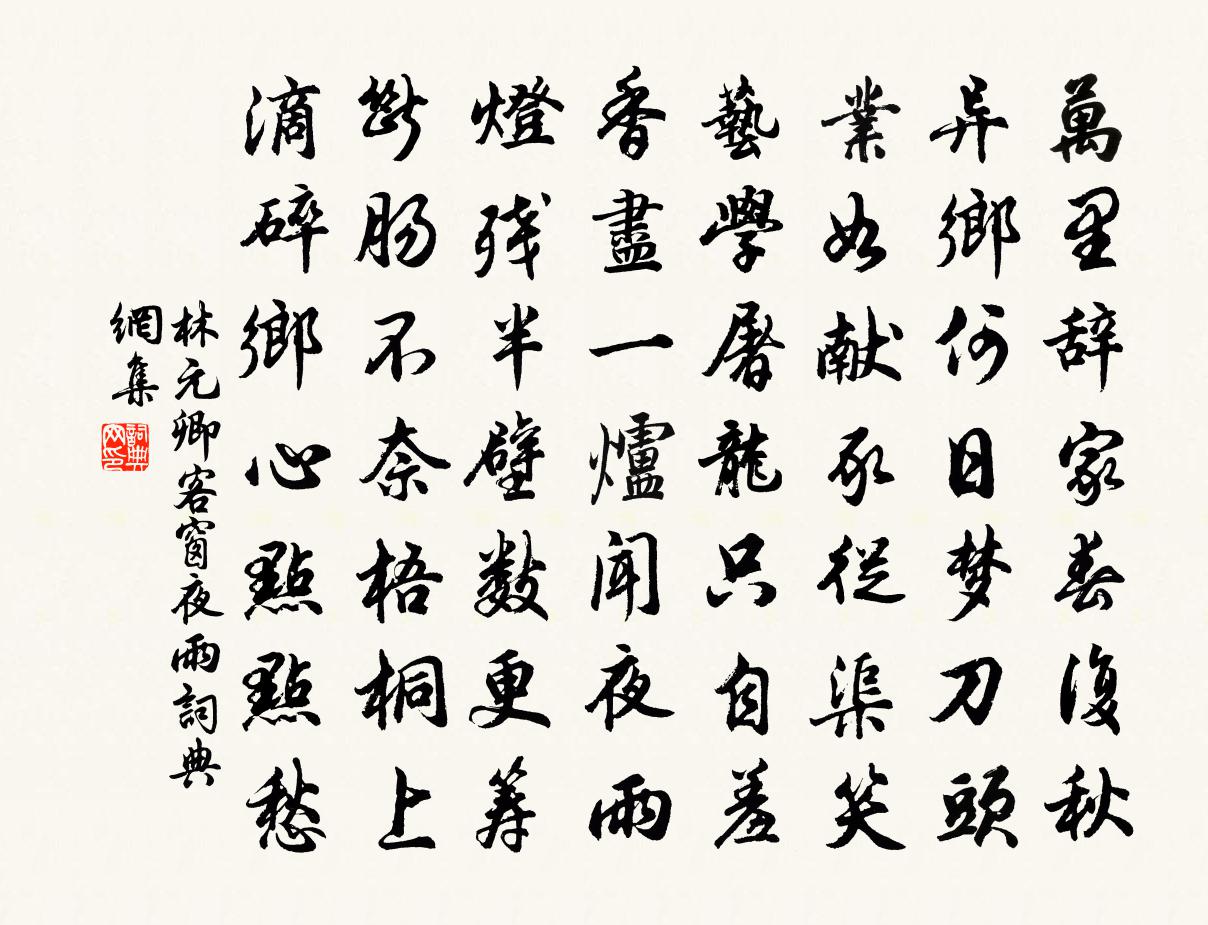 萬里辞家春復秋
异鄉何日梦刀頭
業如献豕從渠笑
藝學屠龍只自羞
香盡一爐聞夜雨
燈残半壁数更筹
斷腸不奈梧桐上
滴碎鄉心點點愁
林元卿客窗夜雨詞典
網集
詞典网印